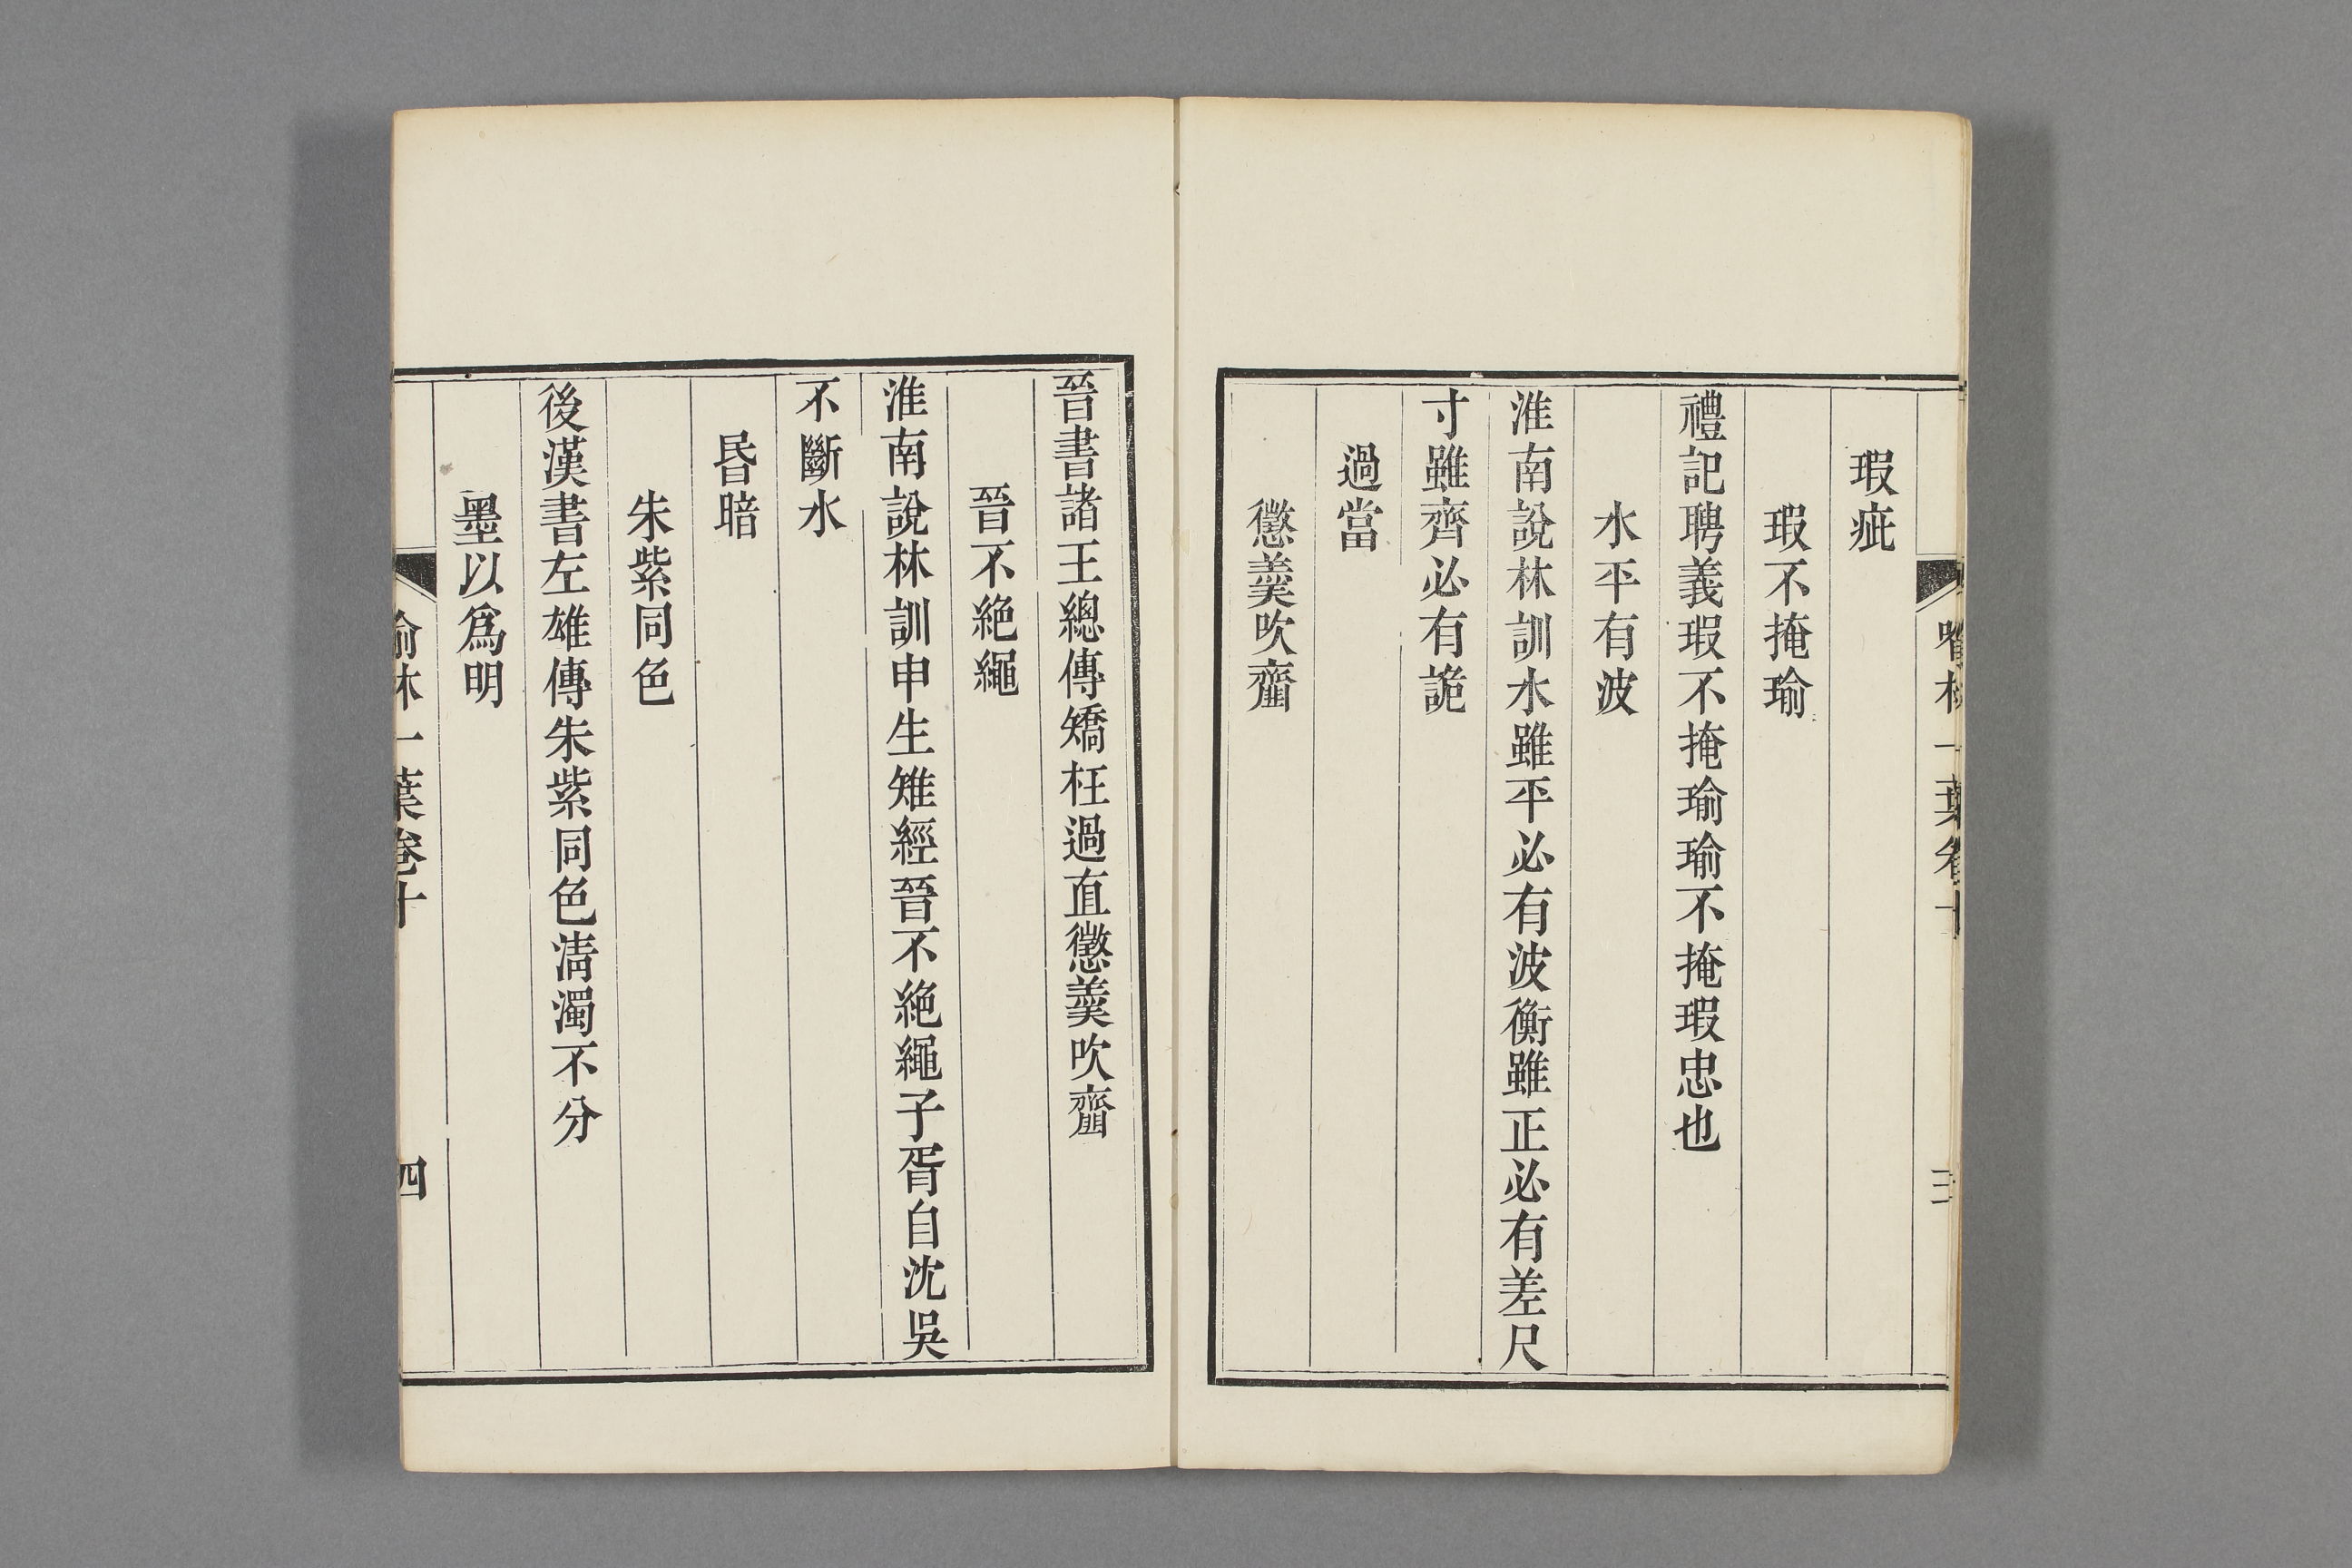 瑕疵
瑕不掩瑜
禮記聘義瑕不掩瑜瑜不掩瑕忠也
水平有波
淮南說林訓水雖平必有波衡雖正必有差尺
寸雖齊必有詭
過當
懲羹吹齏
喻林一葉卷十
三
晉書諸王總傳矯枉過直懲羹吹齏
晉不絶繩
淮南說林訓申生雉經晉不絶繩子胥自沈吳
不斷水
昬暗
朱紫同色
後漢書左雄傳朱紫同色淸濁不分
墨以爲明
喻林一葉卷十
四